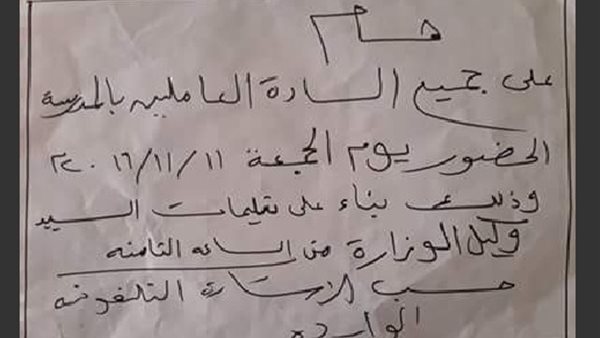 هــام
على جميع السادة العاملين بالمدرسة
الحضور يوم الجمعة ١١/١١/٢٠١٦م
وذلك بناء على تعليمات السيد
وكيل الوزارة من الساعه الثامنه
حسب الإشارة التلفونيه
الوارده